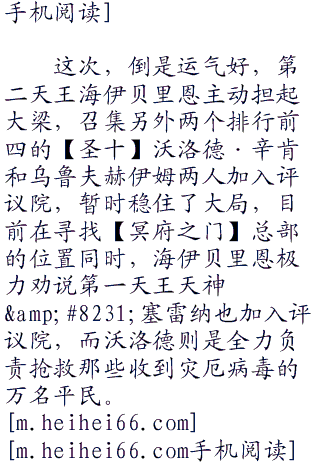 手机阅读]
这次，倒是运气好，第
二天王海伊贝里恩主动担起
大梁，召集另外两个排行前
四的【圣十】沃洛德·辛肯
和乌鲁夫赫伊姆两人加入评
议院，暂时稳住了大局，目
前在寻找【冥府之门】总部
的位置同时，海伊贝里恩极
力劝说第一天王天神
&amp;#8231;塞雷纳也加入评
议院，而沃洛德则是全力负
责抢救那些收到灾厄病毒的
万名平民。
[m.heihei66.com]
[m.heihei66.com手机阅读]